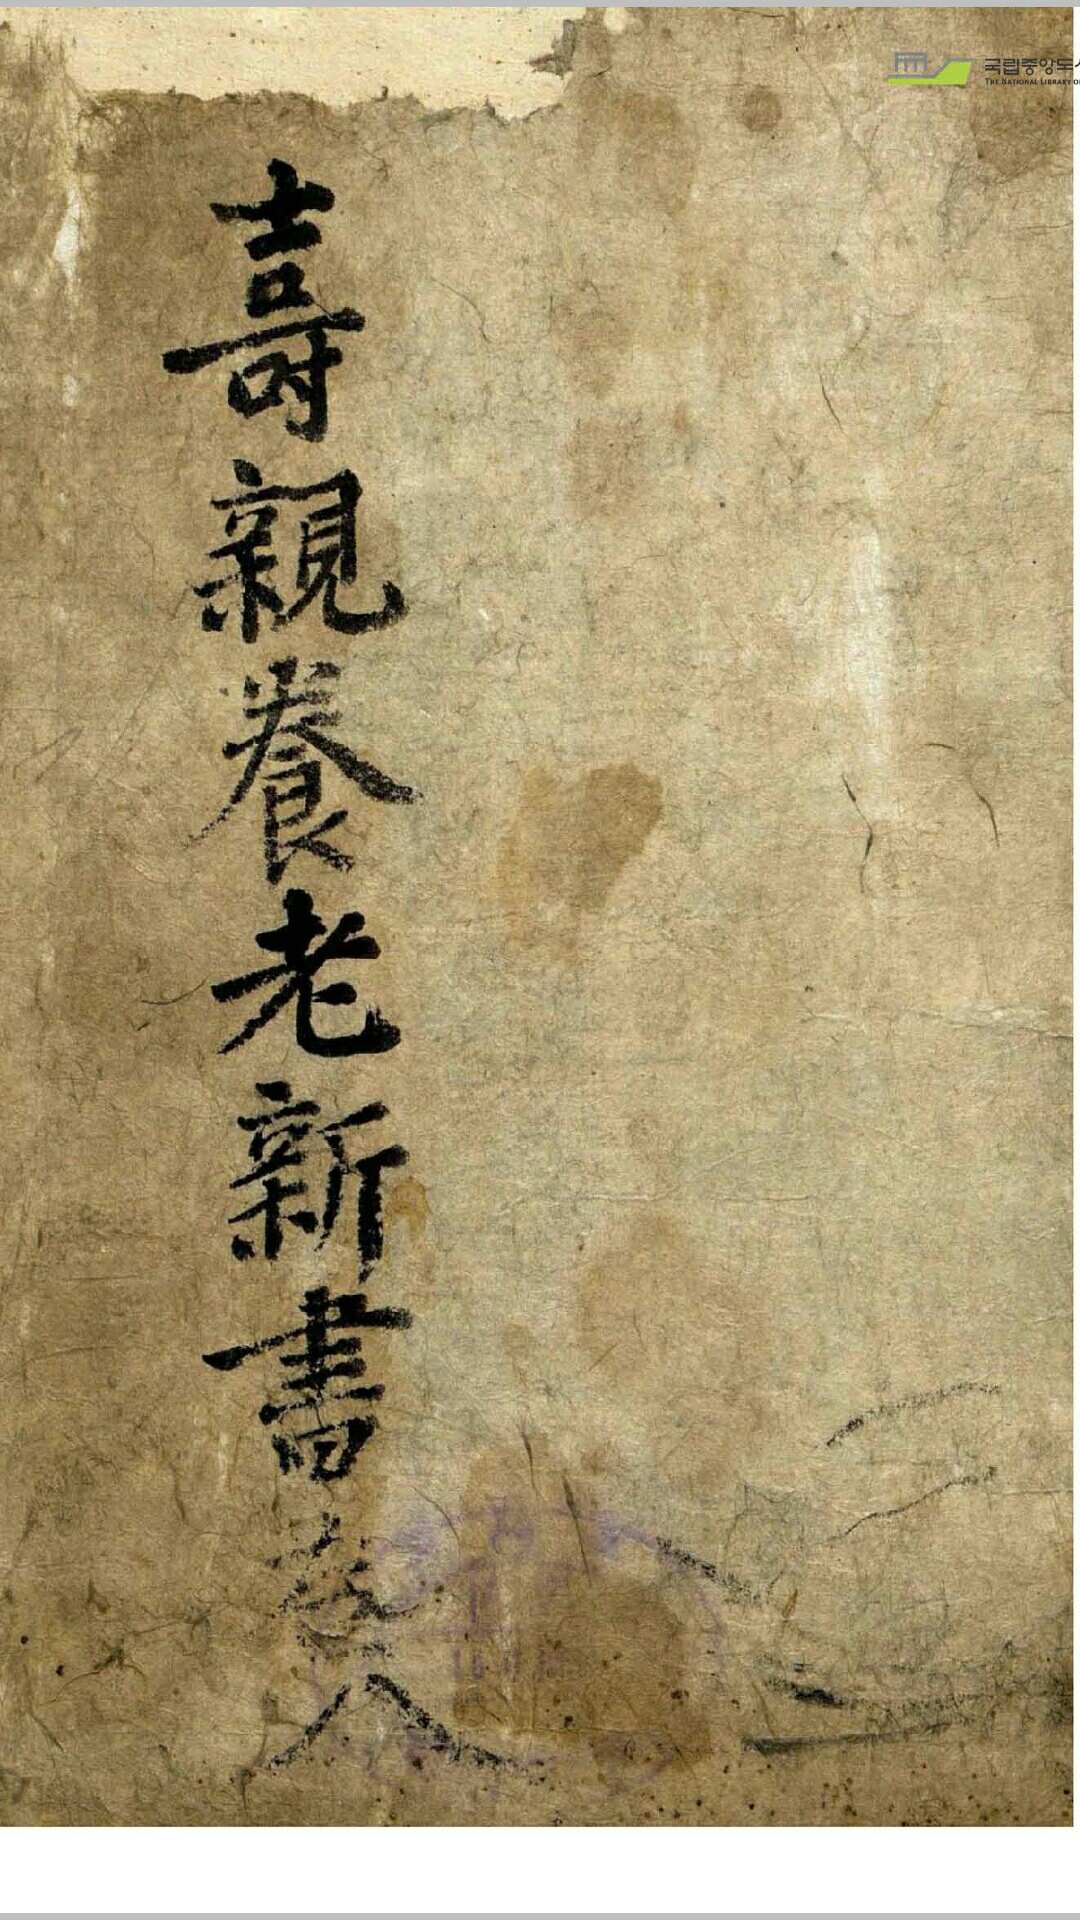 국립중앙도
THE NATIONAL LIBRARY O
壽親養老新書
八